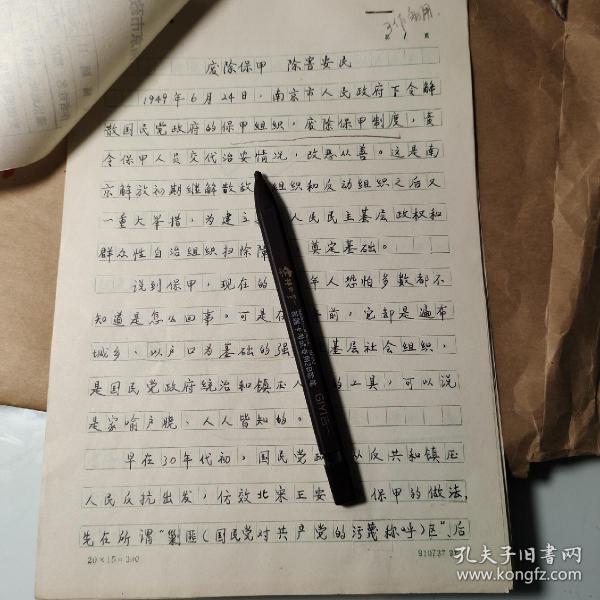 工作的用
废除保甲 除害安民
1949年6月24日，南京市人民政府下令解
散国民党政府的保甲组织，废除保甲制度，责
令保甲人员交代治安情况，改恶从善。这是南
京解放初期继解散敌 组织和反动组织之后又
一重大举措，为建立 人民民主基层政权和
群众性自治组织扫除障 奠定基础。
说到保甲，现在的 年人恐怕多数都不
知道是怎么回事。可是在 前，它却是遍布
城乡、以户口为基础的强 基层社会组织，
是国民党政府统治和镇压人 的工具，可以说
是家喻户晓、人人皆知的。
早在30年代初，国民党政 从反共和镇压
人民反抗出发，仿效北宋王安 保甲的做法，
先在所谓“剿匪（国民党对共产党的污蔑称呼）区”、后
20×15=300
910737
孔夫子旧书网
www.kongfz.com